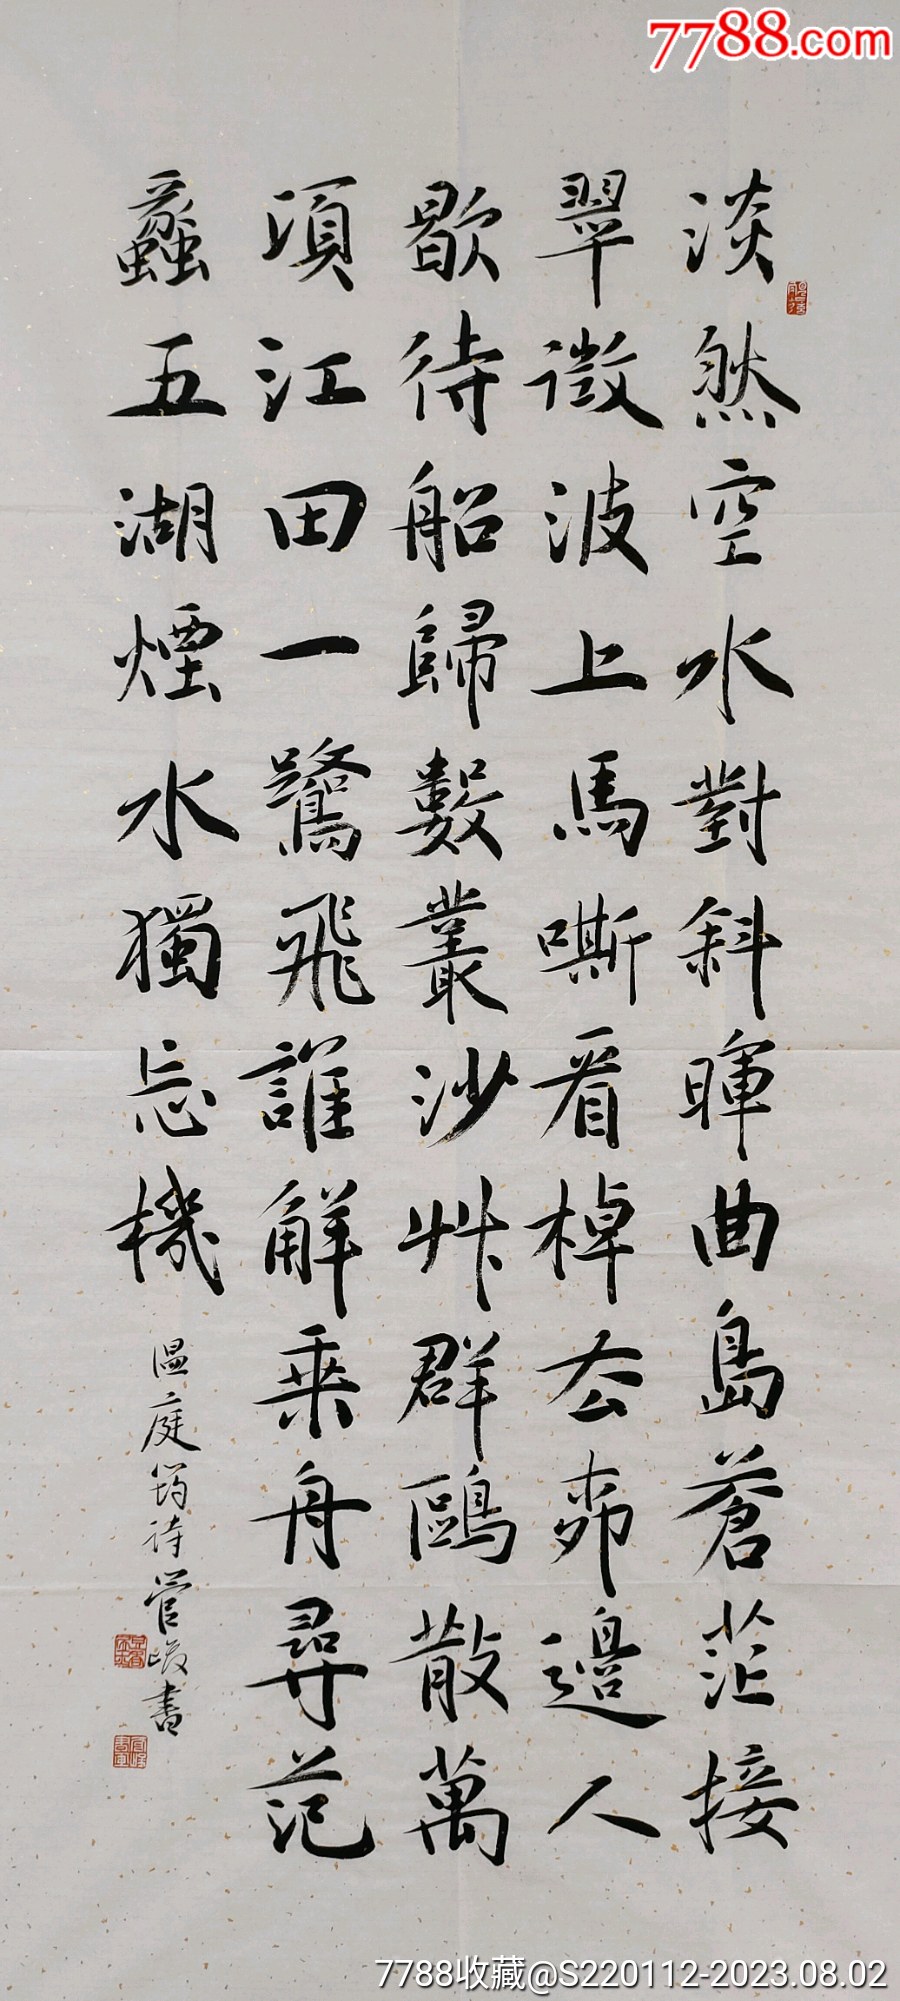 7788.com
淡然空水對斜暉曲島蒼茫接
翠微波上馬嘶看棹去桺邊人
歇待船歸數叢沙艸群鷗散萬
頃江田一鷺飛誰解乗舟尋范
蠡五湖煙水獨忘機
温庭筠诗管峻書
7788收藏@S220112-2023.08.02